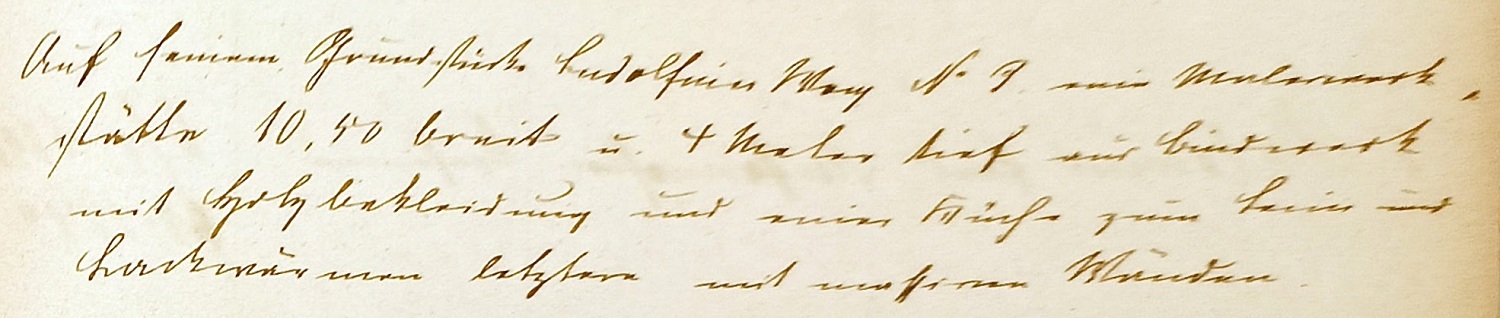 Auf seinem Grundstück Ludolfinerweg No 9. eine Malerwerk-
stätte 10,50 breit u. 4 Meter tief aus Bindewerk
mit Holzbekleidung und einer Küche zum Leim und
Lackwärmen letztere mit massiven Wänden.